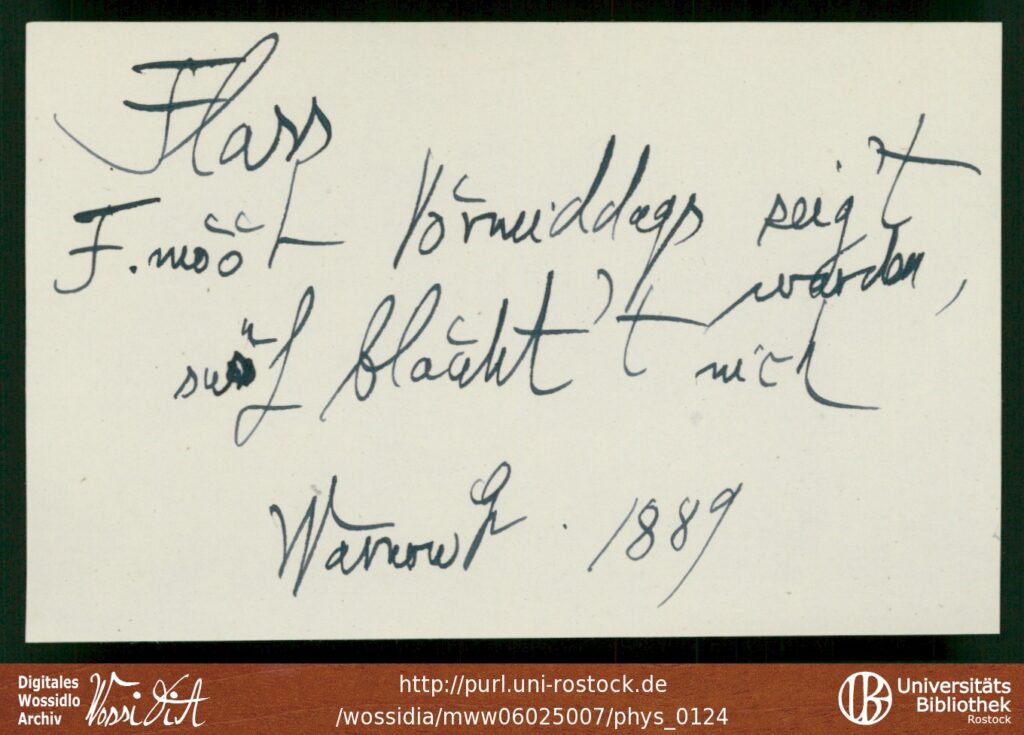 Flass
F. mööt Vörmiddags seig't
warden,
süs blöüht 't nich
Warnow 1889
Digitales
Wossidlo
Archiv
WossiDiA
http://purl.uni-rostock.de
/wossidia/mww06025007/phys_0124
Universitäts
Bibliothek
Rostock